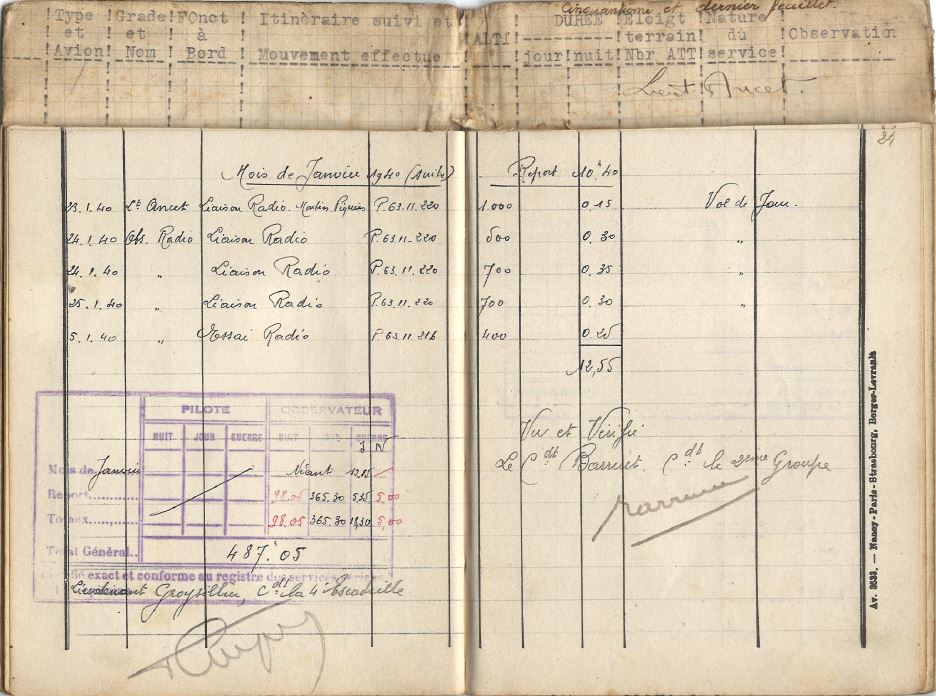 Cinquantième et dernier feuillet.
Type et Avion Grade et Nom FOnct à Bord Itinèraire suivi et Mouvement effectue ALTI DUREE jour nuit Eloigt terrain Nbr ATT Nature du service Observation
Lieut. Ancet.
21
Mois de Janvier 1940 (suite) Report 10h.40
23.1.40 Lt Ancet Liaison Radio. P.63.11.220 1.000 0.15 Vol de Jour.
24.1.40 Obs. Radio Liaison Radio P.63.11.220 500 0.30 "
24.1.40 " Liaison Radio P.63.11.220 700 0.35 "
25.1.40 " Liaison Radio P.63.11.220 700 0.30 "
5.1.40 " Essai Radio P.63.11.216 400 0.25
12,55
PILOTE OBSERVATEUR
NUIT JOUR GUERRE NUIT JOUR GUERRE
J N
Mois de Janvier Néant 12,55
Report 98.05 365.30 5,25 5,00
Totaux 98.05 365.30 18,20 5,00
Total Général.. 487h.05
exact et conforme au registre des services aériens
Lieutenant Cdt la 4e Escadrille
Vu et Vérifié
Le Cdt Barruet. Cdt le 2eme Groupe
Av. 3533. — Nancy-Paris-Strasbourg, Berger-Levrault